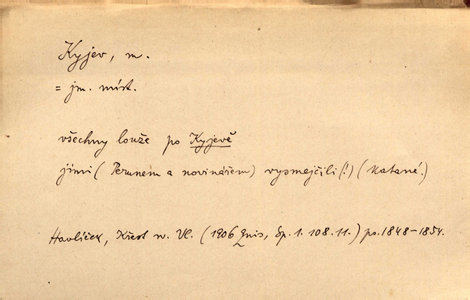 Kyjev, m.
= jm. míst.
všechny louže po Kyjevě
jimi (Perunem a novinářem) vysmejčili (!) (katané.)
Havlíček, Křest sv. Vl. (1906 Quis, Sp. 1. 108. 11.) po. 1848-1854.